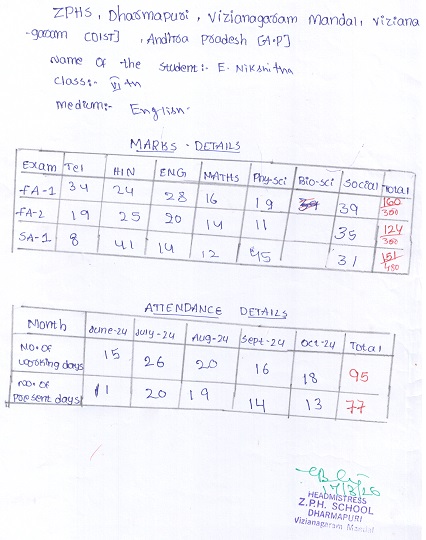 ZPHS, Dharmapuri, Vizianagaram Mandal, Viziana
-garam [DIST], Andhra Pradesh [A.P]
Name of the student:- E. Nikshitha
Class:- VI th
Medium:- English.
MARKS - DETAILS
Exam Tel HIN ENG MATHS Phy-sci Bio-sci Social Total
FA-1 34 24 28 16 19 39 160/300
FA-2 19 25 20 14 11 35 124/300
SA-1 8 41 14 12 45 31 151/480
ATTENDANCE DETAILS
Month June-24 July-24 Aug-24 Sept-24 Oct-24 Total
No. of working days 15 26 20 16 18 95
No. of present days 11 20 19 14 13 77
HEADMISTRESS
Z.P.H. SCHOOL
DHARMAPURI
Vizianagaram Mandal